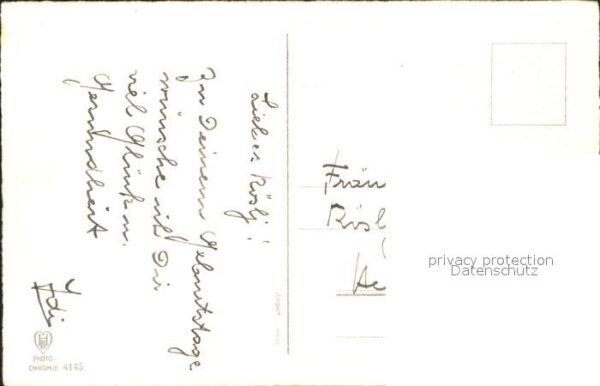 Liebes Rösly!
Zu Deinem Geburtstage
wünsche ich Dir
viel Glück u.
Gesundheit
Fräu
Rösl
He
privacy protection
Datenschutz
PHOTO-
CHROMIE 4145